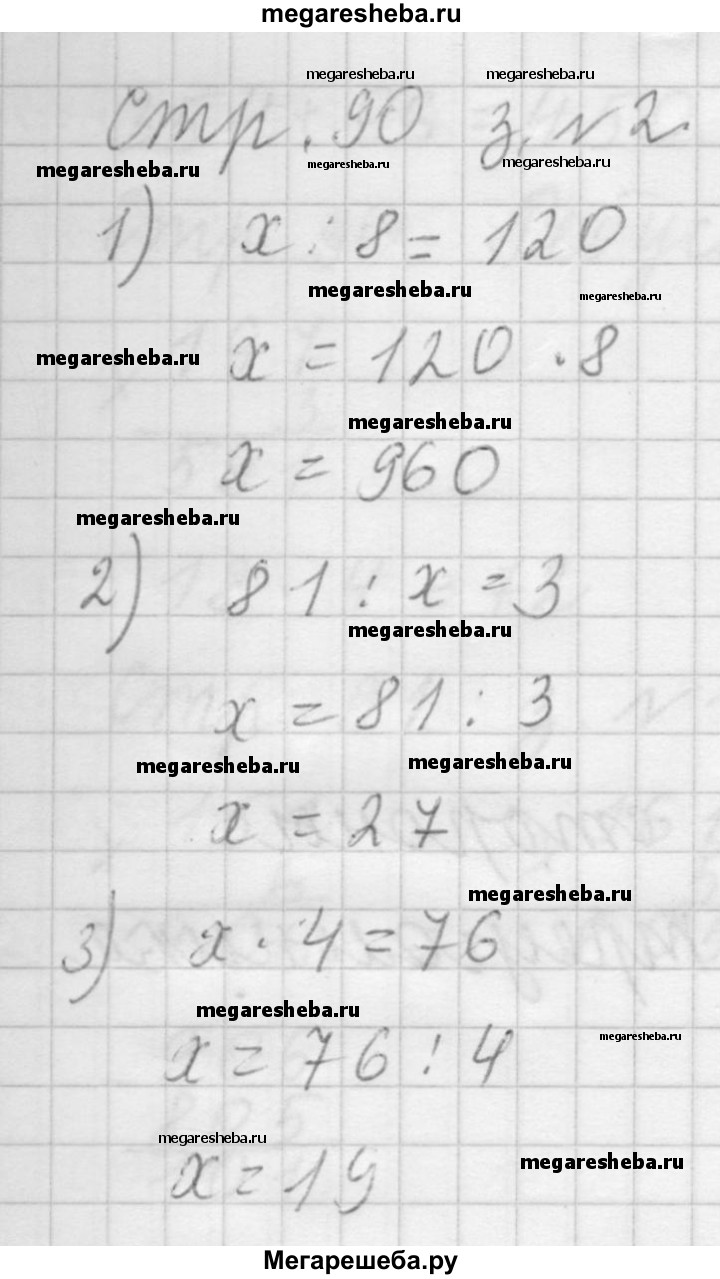 megaresheba.ru
megaresheba.ru megaresheba.ru
стр. 90 з. №2.
megaresheba.ru megaresheba.ru megaresheba.ru
1) x : 8 = 120
megaresheba.ru megaresheba.ru
megaresheba.ru x = 120 · 8
megaresheba.ru
x = 960
megaresheba.ru
2) 81 : x = 3
megaresheba.ru
x = 81 : 3
megaresheba.ru megaresheba.ru
x = 27
megaresheba.ru
3) x · 4 = 76
megaresheba.ru
megaresheba.ru
x = 76 : 4
megaresheba.ru
x = 19
megaresheba.ru
Мегарешеба.ру